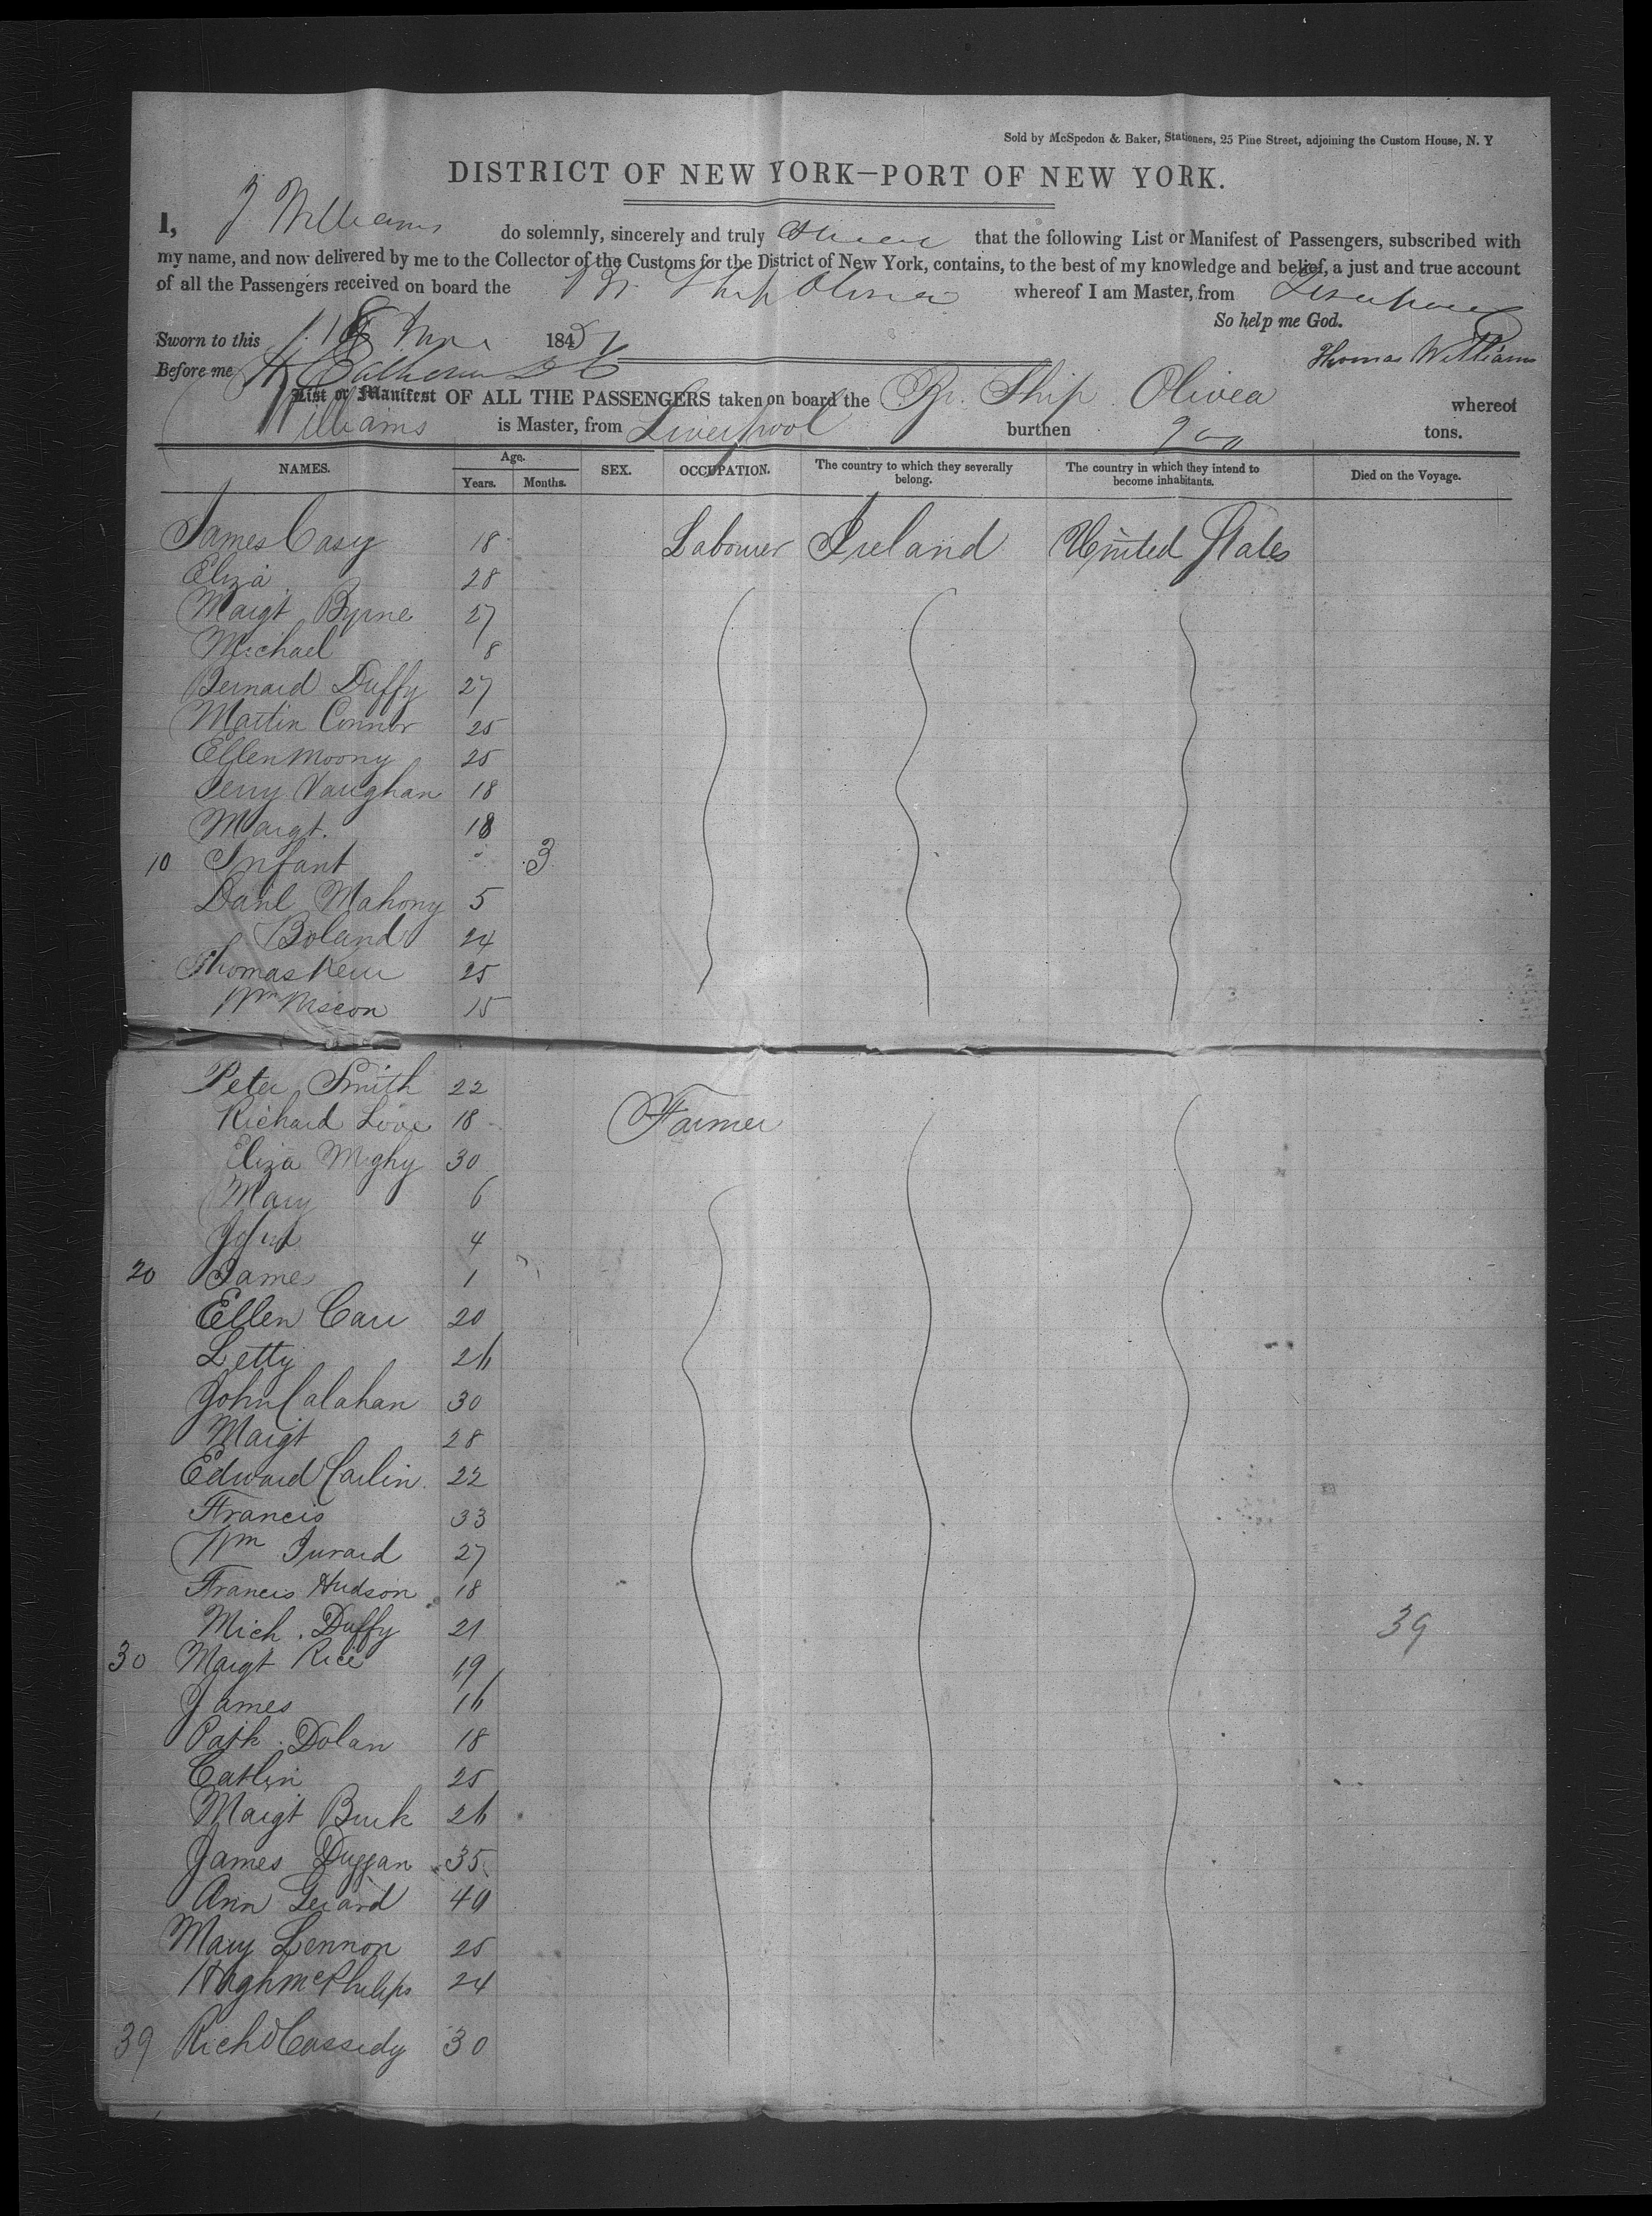 Sold by McSpedon & Baker, Stationers, 25 Pine Street, adjoining the Custom House, N. Y
DISTRICT OF NEW YORK—PORT OF NEW YORK.
I, J Williams do solemnly, sincerely and truly that the following List or Manifest of Passengers, subscribed with
my name, and now delivered by me to the Collector of the Customs for the District of New York, contains, to the best of my knowledge and belief, a just and true account
of all the Passengers received on board the Br. Ship Olivea whereof I am Master, from Liverpool
So help me God.
Sworn to this 18 184
Thomas Williams
Before me
List or Manifest OF ALL THE PASSENGERS taken on board the Br. Ship Olivea whereof
Williams is Master, from Liverpool burthen 900 tons.
NAMES. Age. Years. Months. SEX. OCCUPATION. The country to which they severally belong. The country in which they intend to become inhabitants. Died on the Voyage.
James Casy 18 Labourer Ireland United States
Eliza 28
Margt Byrne 27
Michael 8
Bernard Duffy 27
Martin Connor 25
Ellen Moony 25
Jerry Vaughan 18
Margt. 18
10 Infant 3
Danl Mahony 5
Boland 24
Thomas Kerr 25
Wm 15
Peter Smith 22
Richard Love 18 Farmer
Eliza 30
Mary 6
John 4
20 Jame 1
Ellen Carr 20
Letty 26
John Calahan 30
Margt 28
Edward Carlin 22
Francis 33
Wm 27
Francis Hudson 18
Mich. Duffy 21 39
30 Margt Rice 19
James 16
Patk. Dolan 18
Cathn 25
Margt Burk 26
James Duggan 35
Ann Gerard 40
Mary Lennon 25
Hugh McPhilips 24
39 Richd Cassidy 30